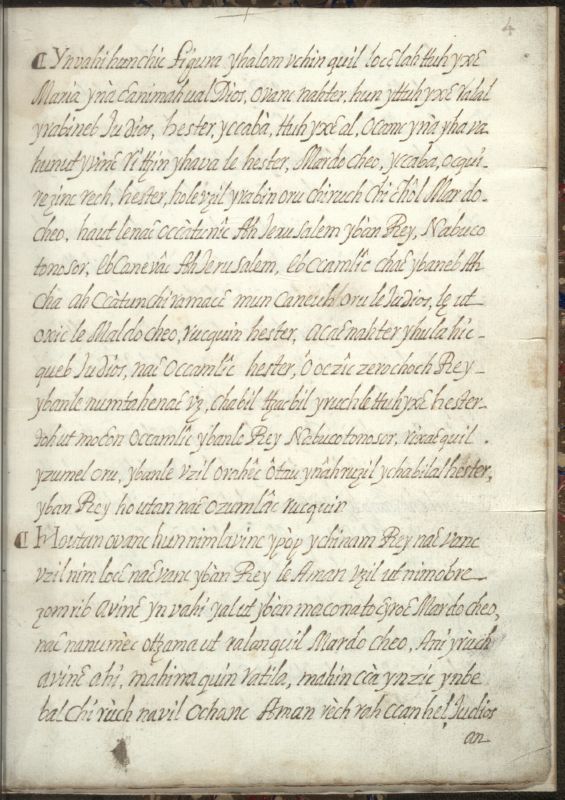 4
¶ Ynvahi hanchic figura yhalom vchin quil locɛlah ttuh yxɛ
Maria ynà canimahual Dios, ovanc nahter, hun yttuh yxɛ ralal
yrabineb Judios, hester, yccabà, ttuh yxɛ al, ocanc ynà yhava
hunut yvinɛ ri ttzin yhava le hester, Mardocheo, yccaba, ocqui-
rezinc rech, hester, holevzil yrabin oru chiruch chi chòl Mardo-
cheo, haut lenac occàtunîc Ah Jerusalem ybàn Rey, Nabuco
tonosor, ebcanevâc Ah Jerusalem, eb ccamlîc chac ybaneb Ah
cha ah ccàtunchiramacɛ mun canexchl oru le Judios, lɛ ut
oxic le Maldocheo, rucquin hester, acacnahter yhula hic-
queb Judios, nac occamlîc hester, ò oczîc zerochoch Rey-
ybanle numtahenac vz, chabil ttzacbil yruchle ttuh yxɛ hester-
toh ut mocon occamlîc ybanle Rey Nabucotonosor, rixac quil
yzumel oru, ybanle vzil orahêc òtau ynàhruzil ychabilal hester,
yban Rey houtan nac ozumlâc rucquin
¶ Houtan ovanc hun nimlavinc ypòp ychinam Rey nac vanc
vzil nim locɛ nac vanc ybàn Rey le Aman vzil ut nimobre-
zomrib avinɛ ynvahi yal ut ybàn maconatocyroɛ Mardocheo,
nac nanumèc ottzama ut ralanquil Mardocheo, Ani yrùch
avinɛ ahi, mahinra quin ratila, mahin ccà ynzic ynbe
bal chi rùch navil ochanc Aman rèch rah ccanhel Judios
an